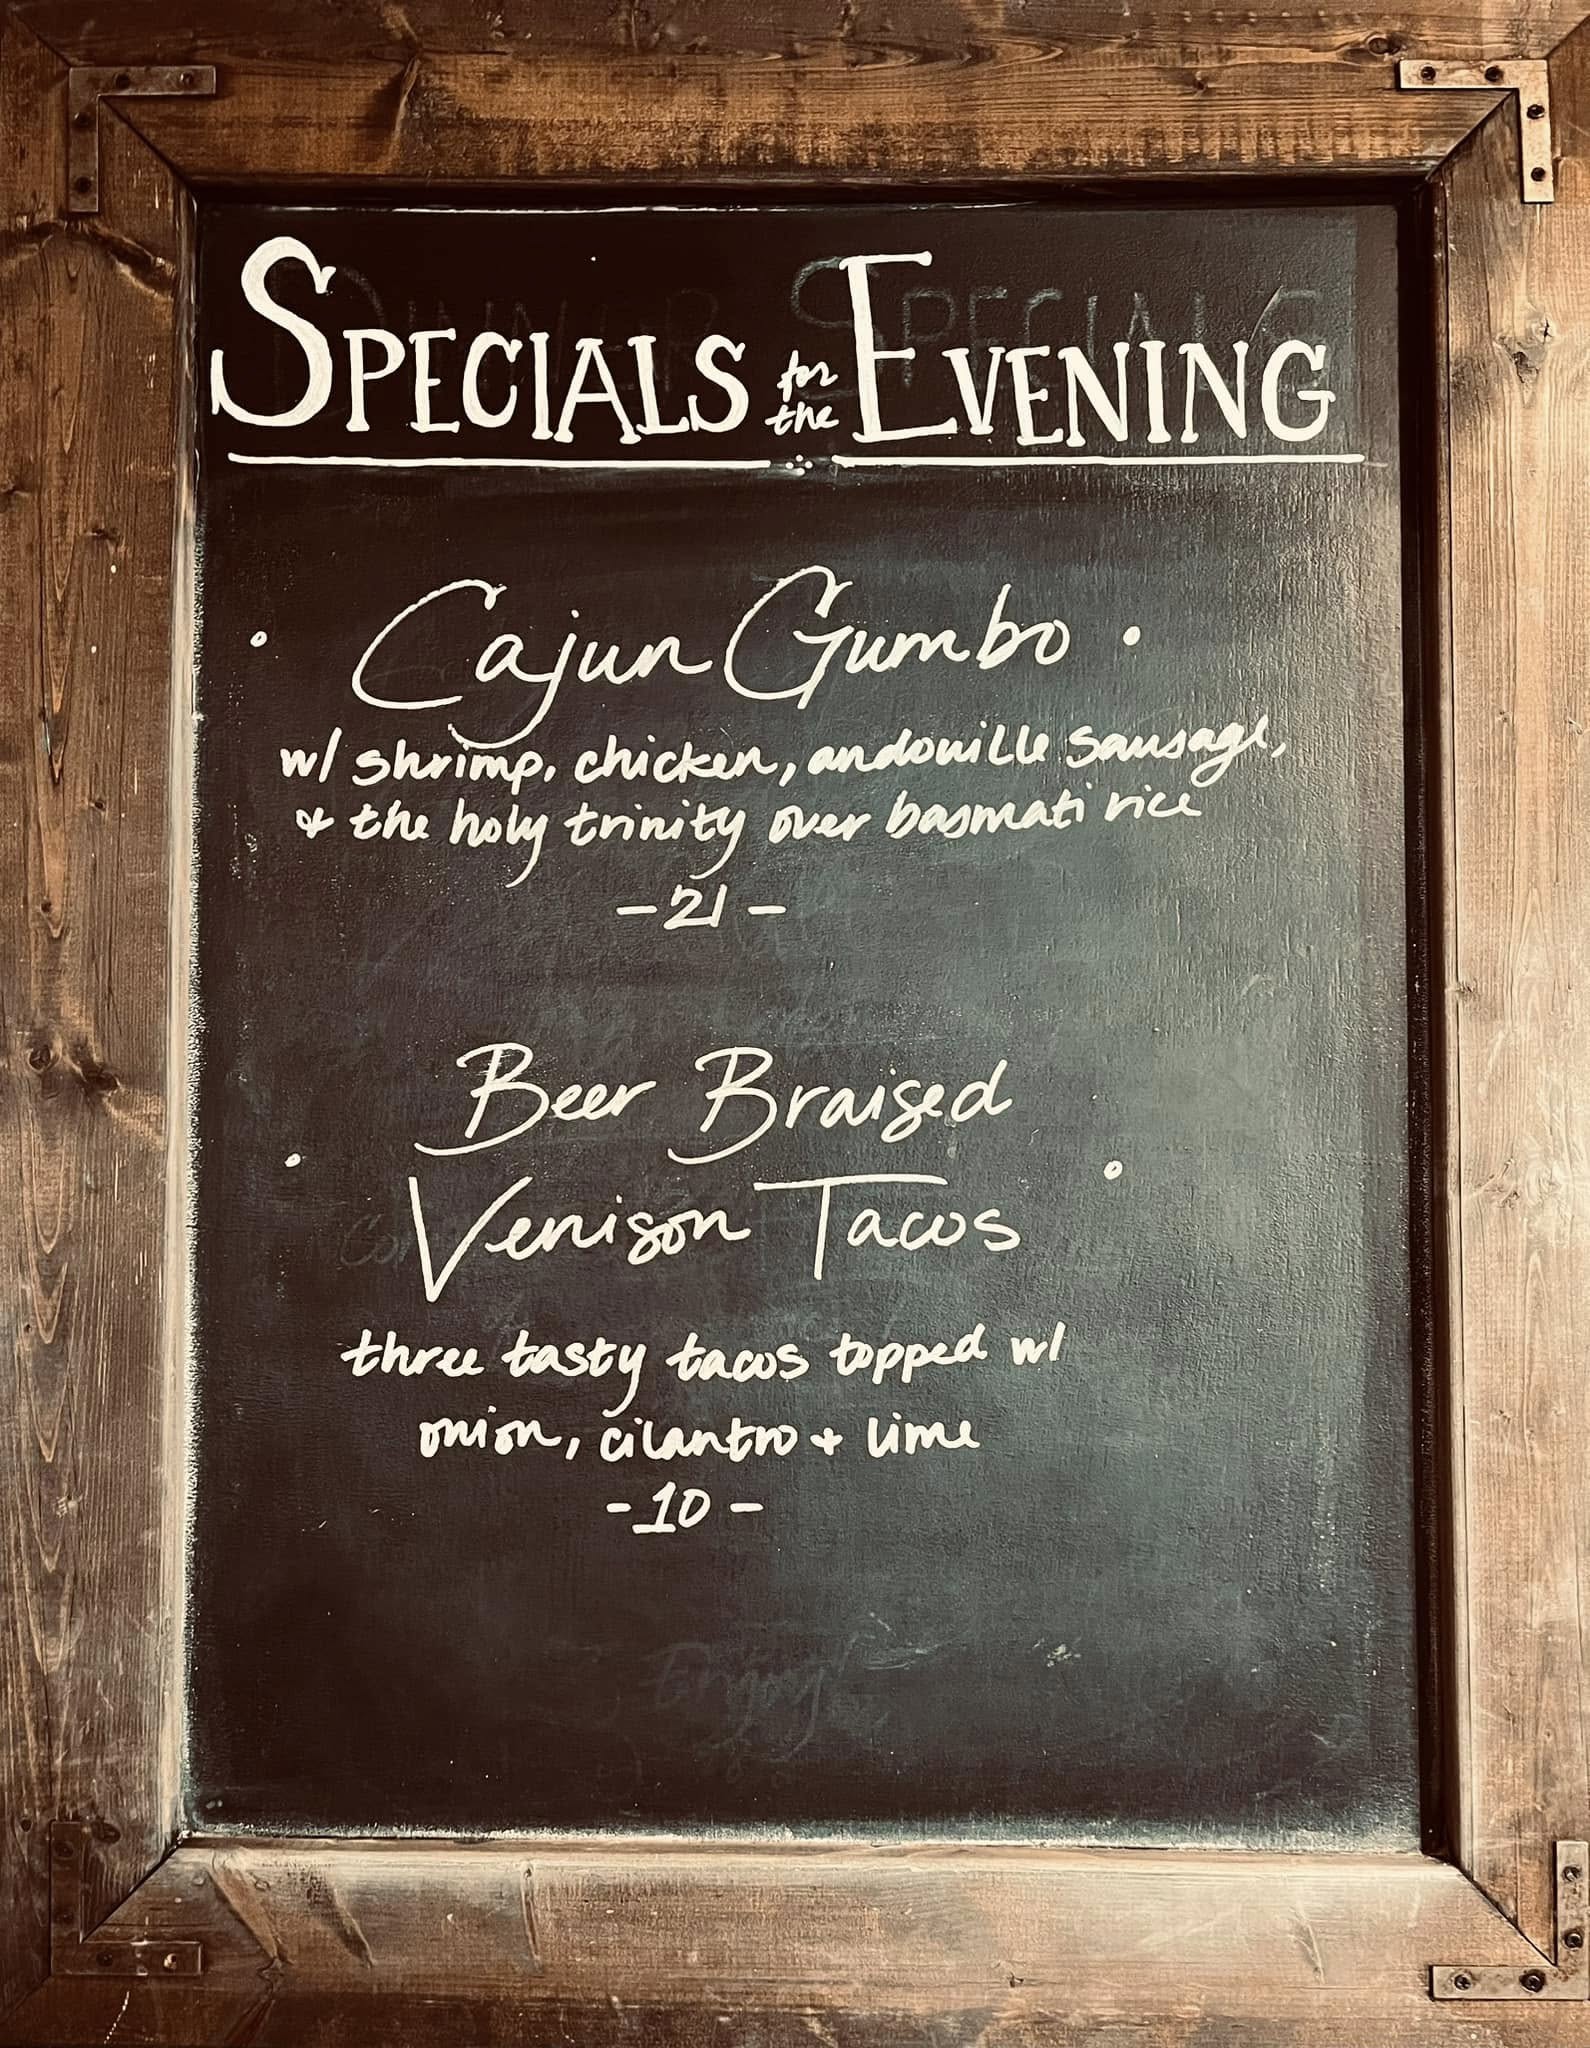 SPECIALS for the EVENING
Cajun Gumbo
w/ shrimp, chicken, andouille sausage,
& the holy trinity over basmati rice
- 21 -
Beer Braised
Venison Tacos
three tasty tacos topped w/
onion, cilantro + lime
- 10 -
Enjoy!